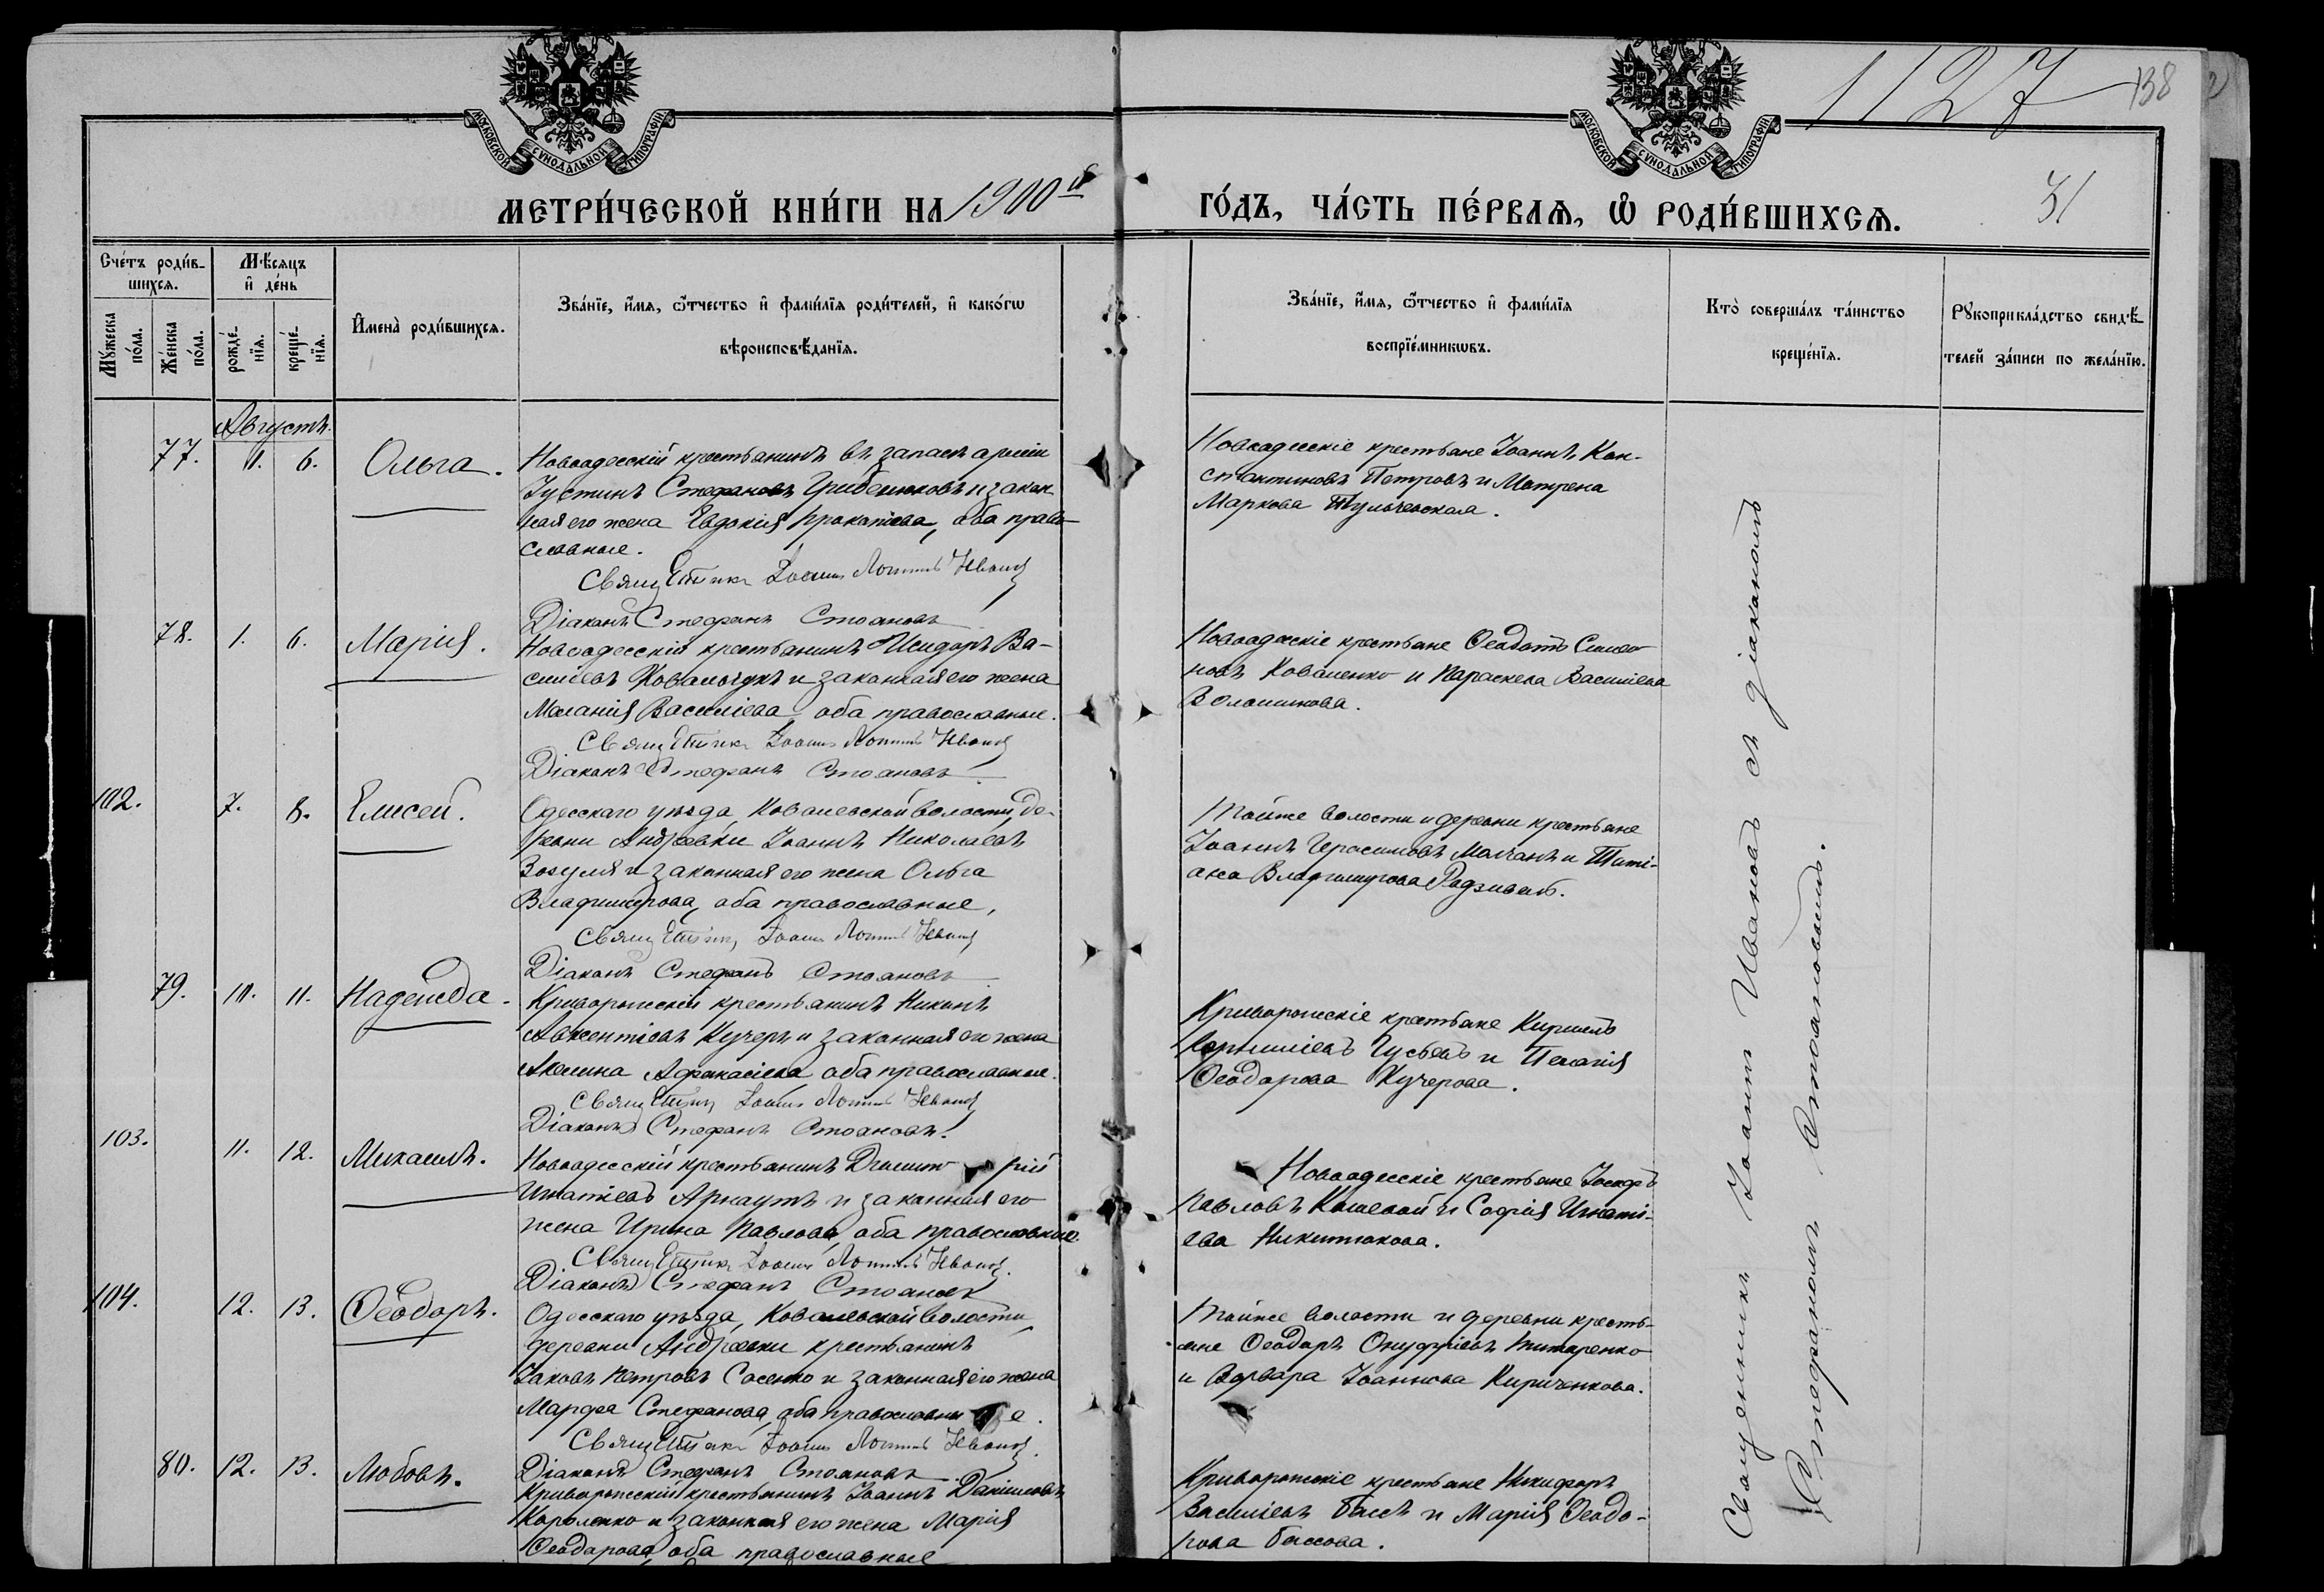 МОСКОВСКОЙ СѴНОДАЛЬНОЙ ТИПОГРАФІИ
МОСКОВСКОЙ СѴНОДАЛЬНОЙ ТИПОГРАФІИ
1127
138
МЕТРИ́ЧЕСКОЙ КНИ́ГИ НА 1900й
ГО́ДЪ, ЧА́СТЬ ПЕ́РВАѦ, Ѡ РОДИ́ВШИХСѦ.
31
Сче́тъ роди́в-
шихсѧ.
Мѣ́сяцъ
и де́нь
Мꙋ́жеска
по́ла.
Же́нска
по́ла.
рожде́-
нїѧ.
креще́-
нїѧ.
Имена̀ роди́вшихсѧ.
Зва́нїе, и́мѧ, ѻ҆́тчество и фами́лїѧ роди́телей, и како́гѡ
вѣроисповѣ́данїѧ.
Зва́нїе, и́мѧ, ѻ҆́тчество и фами́лїѧ
воспрїе́мникѡвъ.
Кто̀ соверша́лъ та́инство
креще́нїѧ.
Рꙋкоприкла́дство свидѣ́-
телей за́писи по жела́нїю.
Августъ.
77. 1. 6. Ольга.
Новоодесскій крестьянинъ въ запасѣ арміи
Іустинъ Стефановъ Грибенюковъ и закон
ная его жена Евдокія Прокопіева, оба право-
славные.
Священникъ Іоаннъ Ивановъ
Діаконъ Стефанъ Стоановъ
Новоодесскіе крестьяне Іоаннъ Кон-
стантиновъ Петровъ и Матрена
Маркова Тульчевская.
78. 1. 6. Марія.
Новоодесскій крестьянинъ Исидоръ Ва-
силіевъ Ковальчукъ и законная его жена
Меланія Василіева, оба православные.
Священникъ Іоаннъ Ивановъ
Діаконъ Стефанъ Стоановъ
Новоодесскіе крестьяне Ѳеодотъ Симео
новъ Коваленко и Параскева Василіева
Волошинова.
102. 7. 8. Елисей.
Одесскаго уѣзда, Ковалевской волости, де-
ревни Андреевки Іоаннъ Николаевъ
Зозуля и законная его жена Ольга
Владимірова, оба православные,
Священникъ Іоаннъ Ивановъ
Діаконъ Стефанъ Стоановъ
Тойже волости и деревни крестьяне
Іоаннъ Герасимовъ Молчанъ и Таті-
ана Владимірова Радзивилъ.
79. 10. 11. Надежда.
Криворожскій крестьянинъ Никонъ
Авксентіевъ Кучеръ и законная его жена
Акилина Афанасіева оба православные.
Священникъ Іоаннъ Ивановъ
Діаконъ Стефанъ Стоановъ.
Криворожскіе крестьяне Кириллъ
Корниліевъ Гусьевъ и Пелагія
Ѳеодорова Кучерова.
103. 11. 12. Михаилъ.
Новоодесскій крестьянинъ Димит рій
Игнатіевъ Арнаутъ и законная его
жена Ирина Павлова, оба православные.
Священникъ Іоаннъ Ивановъ.
Діаконъ Стефанъ Стоановъ
Новоодесскіе крестьяне Іосифъ
Павловъ Кошевой и Софія Игнаті-
ева Никитюкова.
104. 12. 13. Ѳеодоръ.
Одесскаго уѣзда, Ковалевской волости,
деревни Андреевки крестьянинъ
Іаковъ Петровъ Сасенко и законная его жена
Марфа Стефанова, оба православны е.
Священникъ Іоаннъ Ивановъ.
Діаконъ Стефанъ Стоановъ
Тойже волости и деревни кресть-
яне Ѳеодоръ Онуфріевъ Титаренко
и Варвара Іоаннова Кириченкова.
80. 12. 13. Любовь.
Криворожскій крестьянинъ Іоаннъ Даниловъ
Короленко и законная его жена Марія
Ѳеодорова, оба православные
Криворожскіе крестьяне Никифоръ
Василіевъ Басъ и Марія Ѳеодо-
рова Басова.
Священникъ Іоаннъ Ивановъ съ діакономъ
Стефаномъ Стоановымъ.